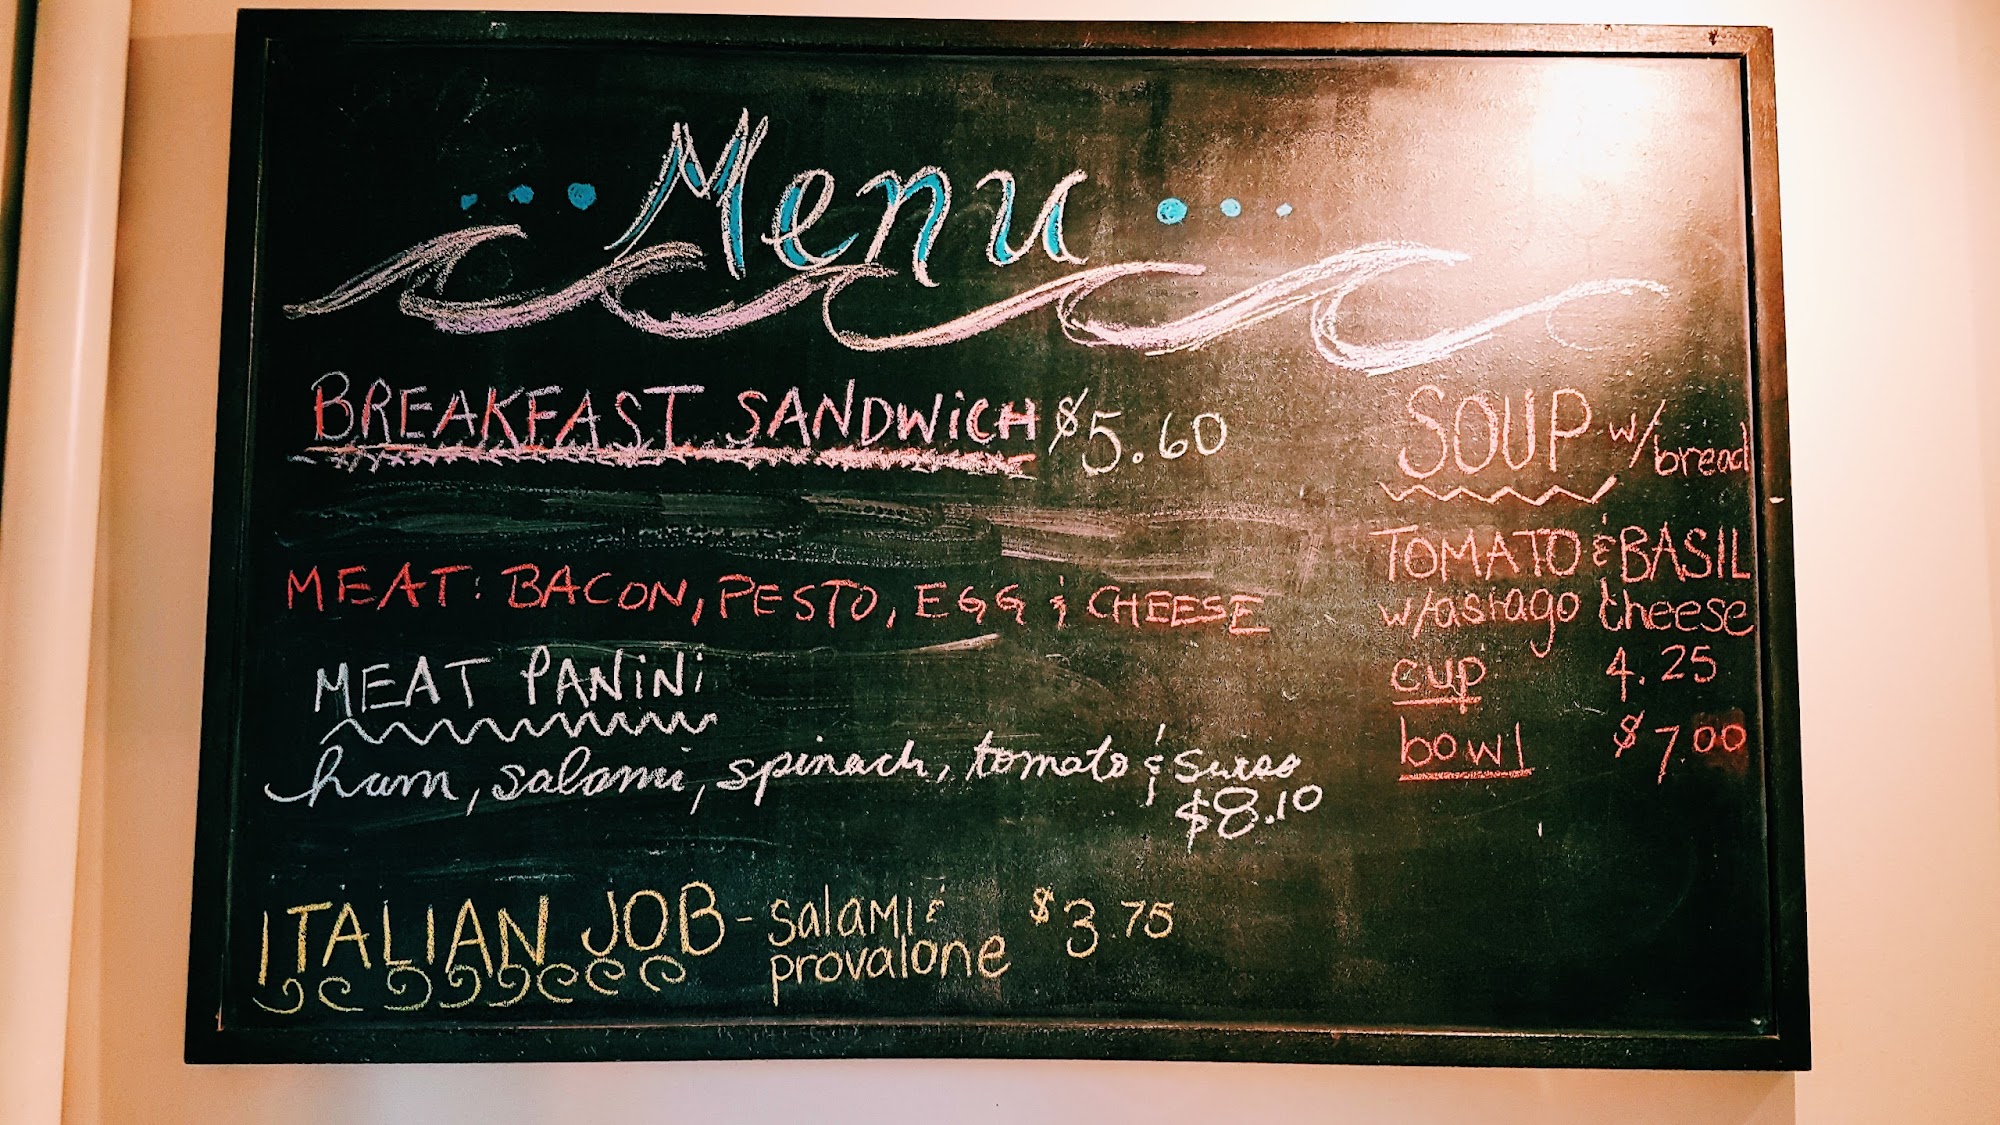 Menu
BREAKFAST SANDWiCH $5.60
MEAT: BACON, PESTO, EGG & CHEESE
MEAT PANiNi
ham, salami, spinach, tomato & swiss
$8.10
ITALIAN JOB - salaMi &
provalone $3.75
SOUP w/
bread
TOMATO & BASIL
w/asiago cheese
cup 4.25
bowl $7.00